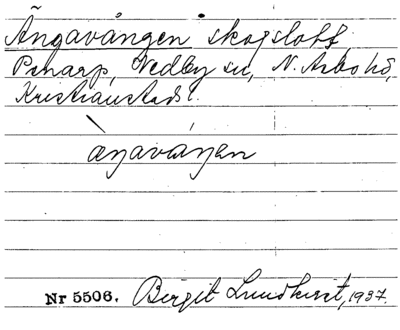 Ängavången skogslott,
Penarp, Vedby sn, N. Åsbo hd,
Kristianstads l.
æŋavaŋən
Nr 5506. Bergit Lundkvist, 1937.